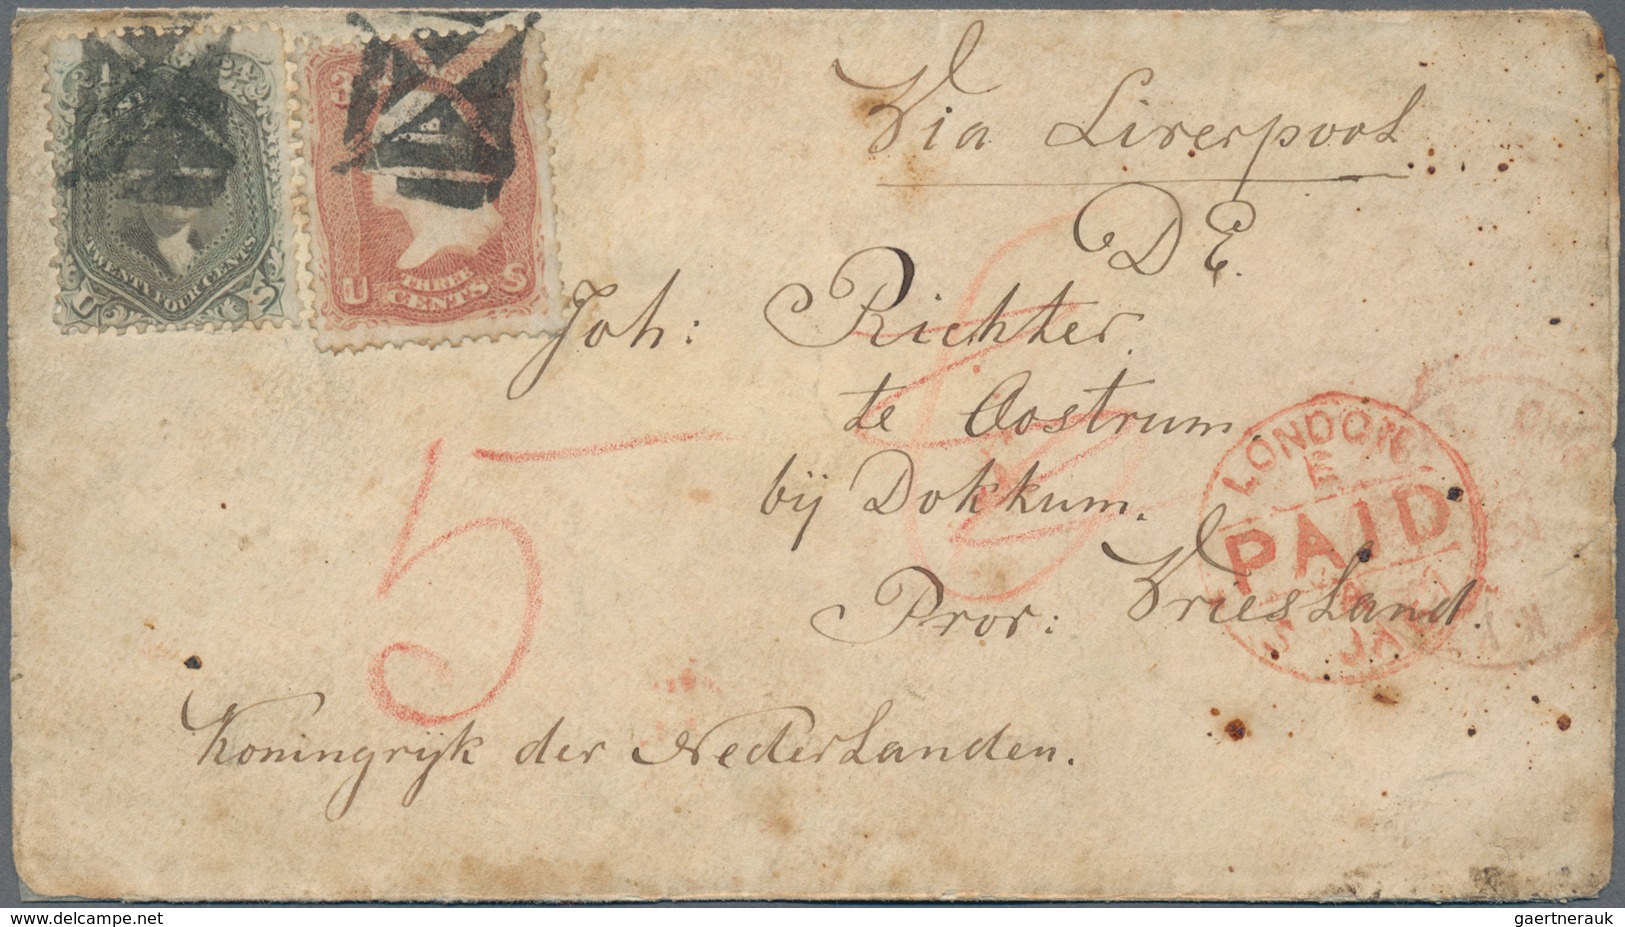 24 24
U TWENTY FOUR CENTS S
3
U THREE CENTS S
Via Liverpool
D E.
Joh: Richter.
te Oostrum.
bij Dokkum.
Prov: Vriesland.
Koningrijk der Nederlanden.
5
LONDON
E
PAID
JA
www.delcampe.net
gaertnerauk